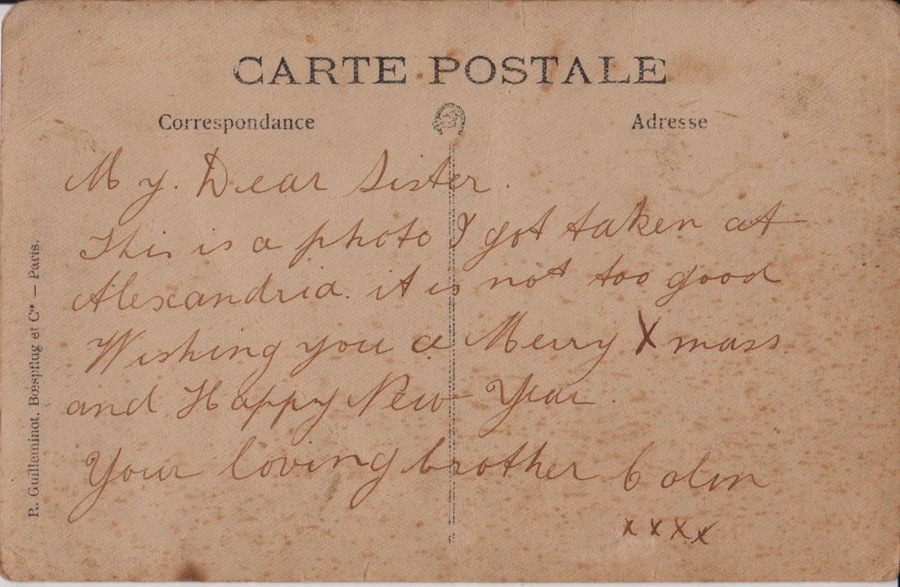 CARTE POSTALE
Correspondance
Adresse
My. Dear Sister.
This is a photo I got taken at
Alexandria. it is not too good
Wishing you a Merry Xmass
and Happy New Year.
Your loving brother Colin
xxxx
R. Guilleminot, Bœspflug et Cie — Paris.